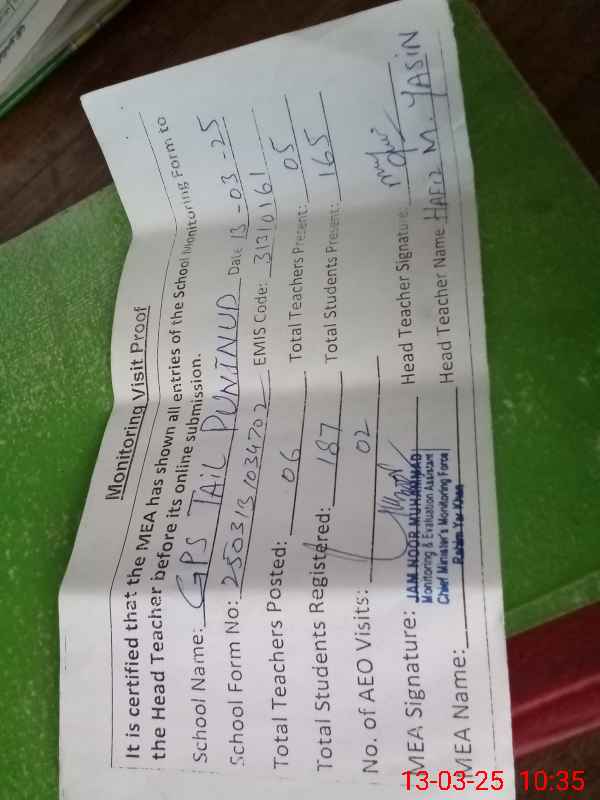 Monitoring Visit Proof
It is certified that the MEA has shown all entries of the School Monitoring Form to
the Head Teacher before its online submission.
School Name: GPS TAIL PUNINUD Date 13-03-25
School Form No: 250313/034702 EMIS Code: 31310161
Total Teachers Posted: 06 Total Teachers Present: 05
Total Students Registered: 187 Total Students Present: 165
No. of AEO Visits: 02
MEA Signature: Head Teacher Signature:
JAM NOOR MUHAMMAD
Monitoring & Evaluation Assistant
Chief Minister's Monitoring Force
Rahim Yar Khan
MEA Name: Head Teacher Name HAFIZ M. YASIN
13-03-25 10:35